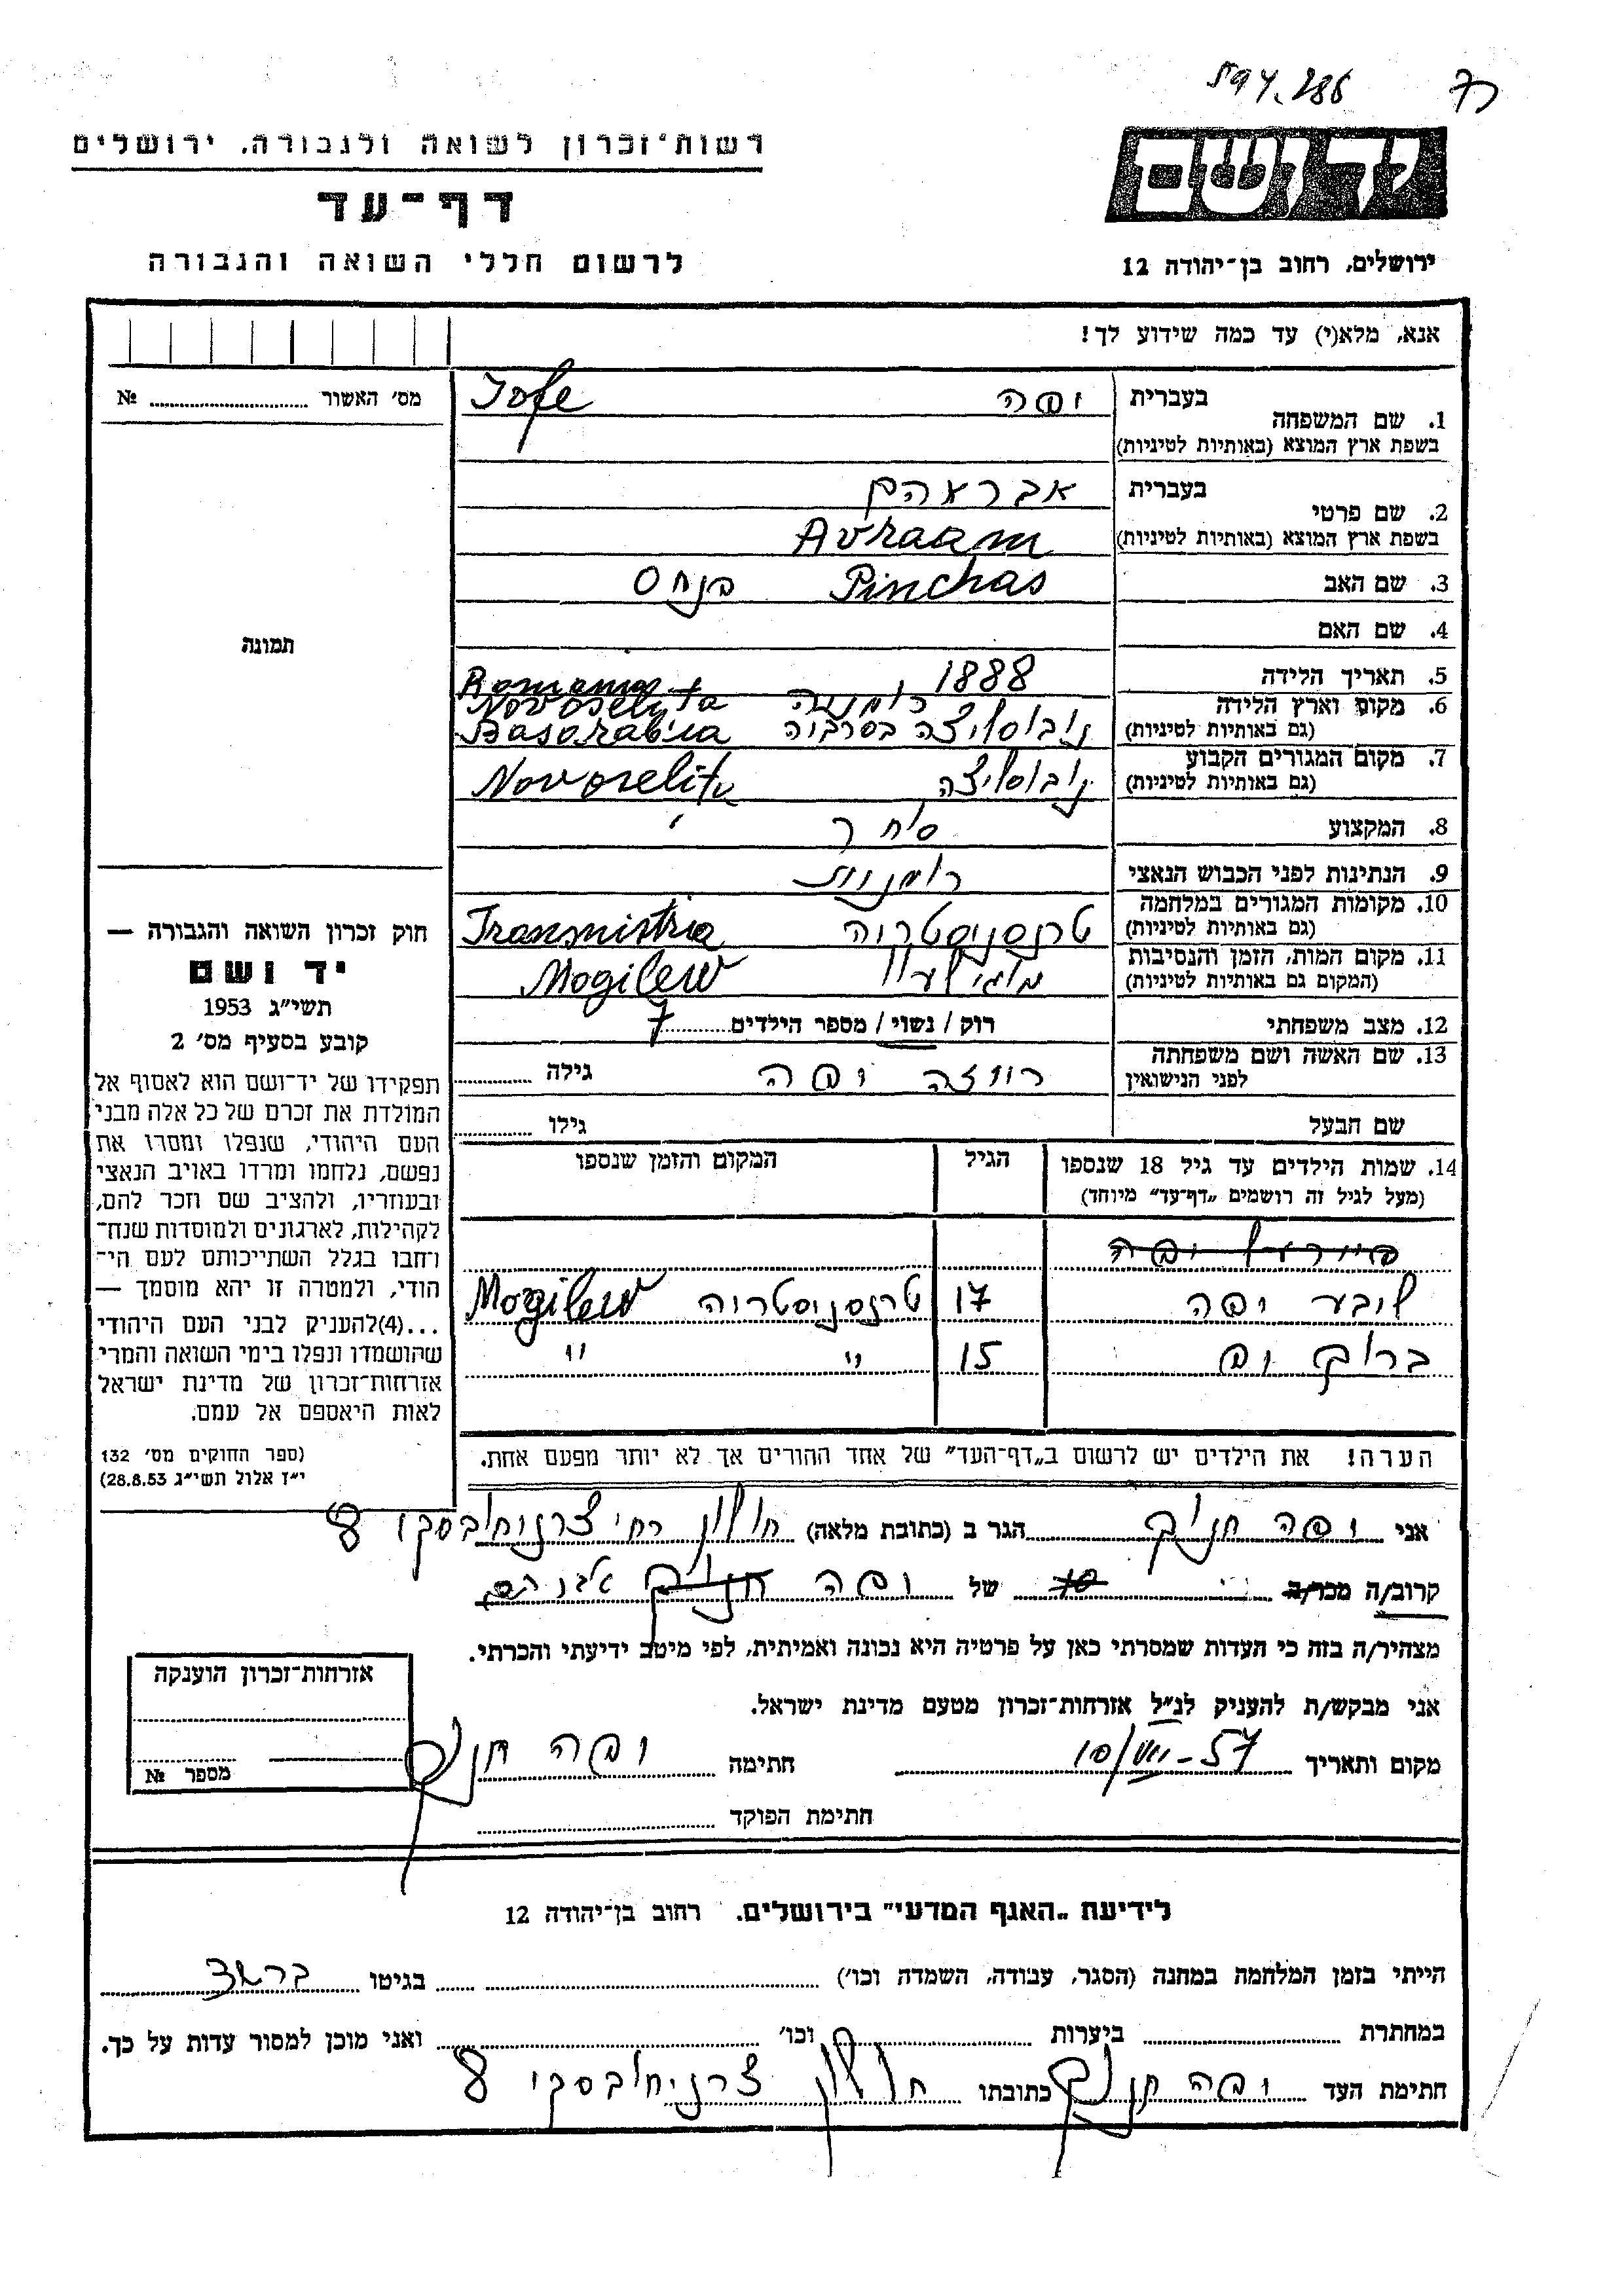 594.286
רשות־זכרון לשואה ולגבורה, ירושלים
יד ושם
דף־עד
לרשום חללי השואה והגבורה
ירושלים, רחוב בן־יהודה 12
אנא, מלא(י) עד כמה שידוע לך!
מס׳ האשור № 
1. שם המשפחה בעברית יפה Iofe
בשפת ארץ המוצא (באותיות לטיניות)
2. שם פרטי בעברית אברהם
בשפת ארץ המוצא (באותיות לטיניות) Avraam
3. שם האב Pinchas פנחס
4. שם האם
תמונה
5. תאריך הלידה 1888
6. מקום וארץ הלידה רומניה Romania Novoselita
(גם באותיות לטיניות) נובוסליצה בסרביה Basarabia
7. מקום המגורים הקבוע
(גם באותיות לטיניות) נובוסליצה Novoselita
8. המקצוע סוחר
9. הנתינות לפני הכבוש הנאצי רומנית
10. מקומות המגורים במלחמה
(גם באותיות לטיניות) טרנסניסטריה Transnistria
11. מקום המות, הזמן והנסיבות
(המקום גם באותיות לטיניות) Mogilew
12. מצב משפחתי רוק / נשוי / מספר הילדים 7
13. שם האשה ושם משפחתה
לפני הנישואין יפה גילה
שם הבעל גילו
14. שמות הילדים עד גיל 18 שנספו הגיל המקום והזמן שנספו
(מעל לגיל זה רושמים „דף־עד״ מיוחד)
יפה
ליבע יפה 17 טרנסניסטריה Mogilew
ברוך יפ 15 " "
הערה! את הילדים יש לרשום ב„דף־העד״ של אחד ההורים אך לא יותר מפעם אחת.
חוק זכרון השואה והגבורה —
יד ושם
תשי״ג 1953
קובע בסעיף מס׳ 2
תפקידו של יד־ושם הוא לאסוף אל
המולדת את זכרם של כל אלה מבני
העם היהודי, שנפלו ומסרו את
נפשם, נלחמו ומרדו באויב הנאצי
ובעוזריו, ולהציב שם וזכר להם,
לקהילות, לארגונים ולמוסדות שנח־
רחבו בגלל השתייכותם לעם הי־
הודי, ולמטרה זו יהא מוסמך —
...(4)להעניק לבני העם היהודי
שהושמדו ונפלו בימי השואה והמרי
אזרחות־זכרון של מדינת ישראל
לאות היאספם אל עמם.
(ספר החוקים מס׳ 132
י״ז אלול תשי״ג 28.8.53)
אני יפה חנוך הגר ב (כתובת מלאה) חולון רח׳ צרניחובסקי 8
קרוב/ה מכר/ה של יפה חנוך אברהם
מצהיר/ה בזה כי העדות שמסרתי כאן על פרטיה היא נכונה ואמיתית, לפי מיטב ידיעתי והכרתי.
אני מבקש/ת להעניק לנ״ל אזרחות־זכרון מטעם מדינת ישראל.
מקום ותאריך 10/VII-57 חתימה יפה חנוך
חתימת הפוקד
אזרחות־זכרון הוענקה
מספר №
לידיעת „האגף המדעי״ בירושלים, רחוב בן־יהודה 12
הייתי בזמן המלחמה במחנה (הסגר, עבודה, השמדה וכו׳) בגיטו ברשד
במחתרת ביערות וכו׳ ואני מוכן למסור עדות על כך.
חתימת העד יפה חנוך כתובתו חולון צרניחובסקי 8